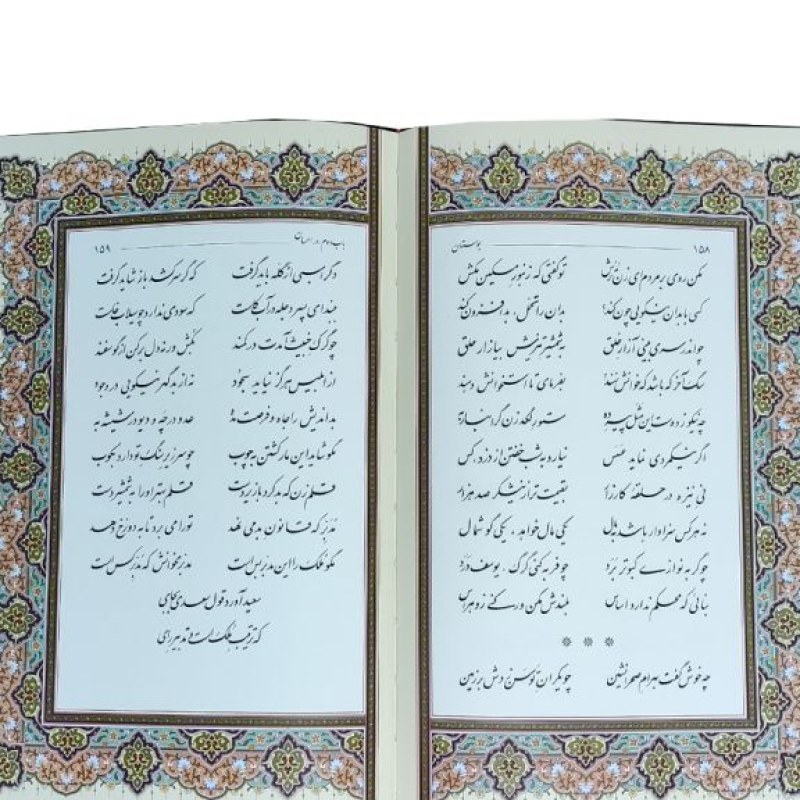 ۱۵۸ بوستان
مکن روی بر مردم ای زن ترش تو گفتی که زنبور مسکین مکش
کسی با بدان نیکویی چون کند؟ بدان را تحمل، بد افزون کند
چو اندر سری بینی آزار خلق به شمشیر تیزش بیازار حلق
سگ آخر که باشد که خوانش نهند؟ بفرمای تا استخوانش دهند
چه نیکو زده‌ست این مثل پیر ده ستور لگدزن گرانبار به
اگر نیکمردی نماید عسس نیارد به شب خفتن از دزد، کس
نی نیزه در حلقهٔ کارزار بقیمت‌تر از نیشکر صد هزار
نه هر کس سزاوار باشد به مال یکی مال خواهد، یکی گوشمال
چو گربه نوازی کبوتر برد چو فربه کنی گرگ، یوسف درد
بنائی که محکم ندارد اساس بلندش مکن ور کنی زو هراس
چه خوش گفت بهرام صحرانشین چو یکران توسن زدش بر زمین
باب دوم در احسان ۱۵۹
دگر اسبی از گله باید گرفت که گر سر کشد باز شاید گرفت
ببند ای پسر دجله در آب کاست که سودی ندارد چو سیلاب خاست
چو گرگ خبیث آمدت در کمند بکش ور نه دل بر کن از گوسفند
از ابلیس هرگز نیاید سجود نه از بد گهر نیکویی در وجود
بداندیش را جاه و فرصت مده عدو در چه و دیو در شیشه به
مگو شاید این مار کشتن به چوب چو سر زیر سنگ تو دارد بکوب
قلم زن که بد کرد با زیردست قلم بهتر او را به شمشیر دست
مدبر که قانون بد می نهد تو را می برد تا به دوزخ دهد
مگو ملک را این مدبر بس است مدبر مخوانش که مدبر کس است
سعید آورد قول سعدی بجای
که ترتیب ملک است و تدبیر رای